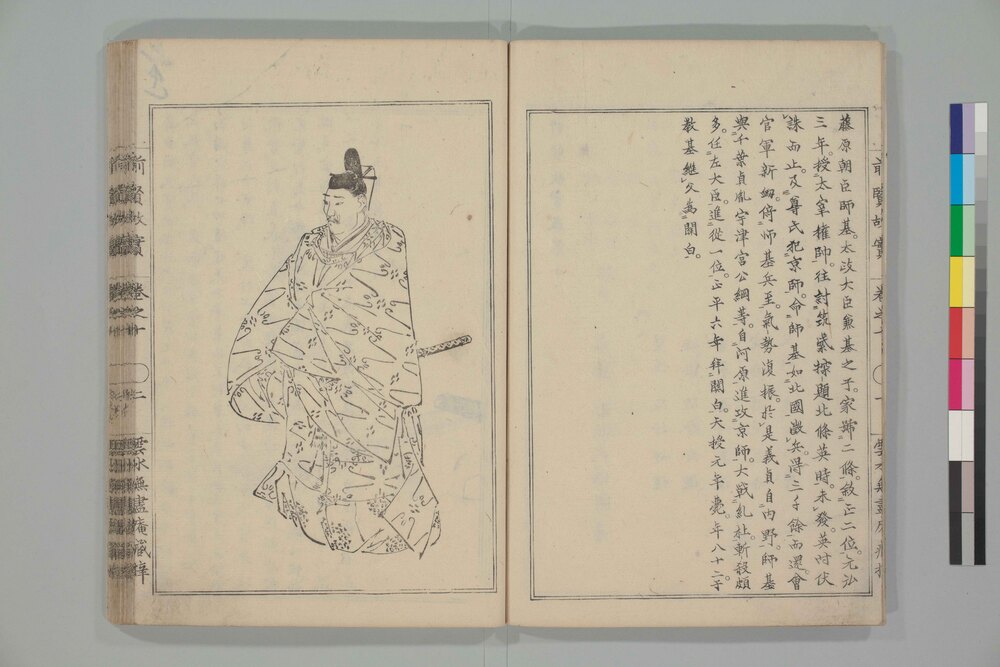 藤原朝臣師基。太政大臣兼基之子。家號二條。敘正二位。元弘
三年。授太宰權帥。往討筑紫探題北條英時。未發。英時伏
誅而止。及尊氏犯京師。命師基如北國徵兵。得三千餘而還。會
官軍新衂。倚師基兵至。氣勢復振。於是義貞自內野。師基
與千葉貞胤宇津宮公綱等。自河原進攻京師。大戰糺社。斬殺頗
多。任左大臣。進從一位。正平六年拜關白。天授元年薨。年八十二。子
教基繼父為關白。
前賢故實
卷之十
雲水無盡庵藏梓
前賢故實
卷之十
二
雲水無盡庵藏梓